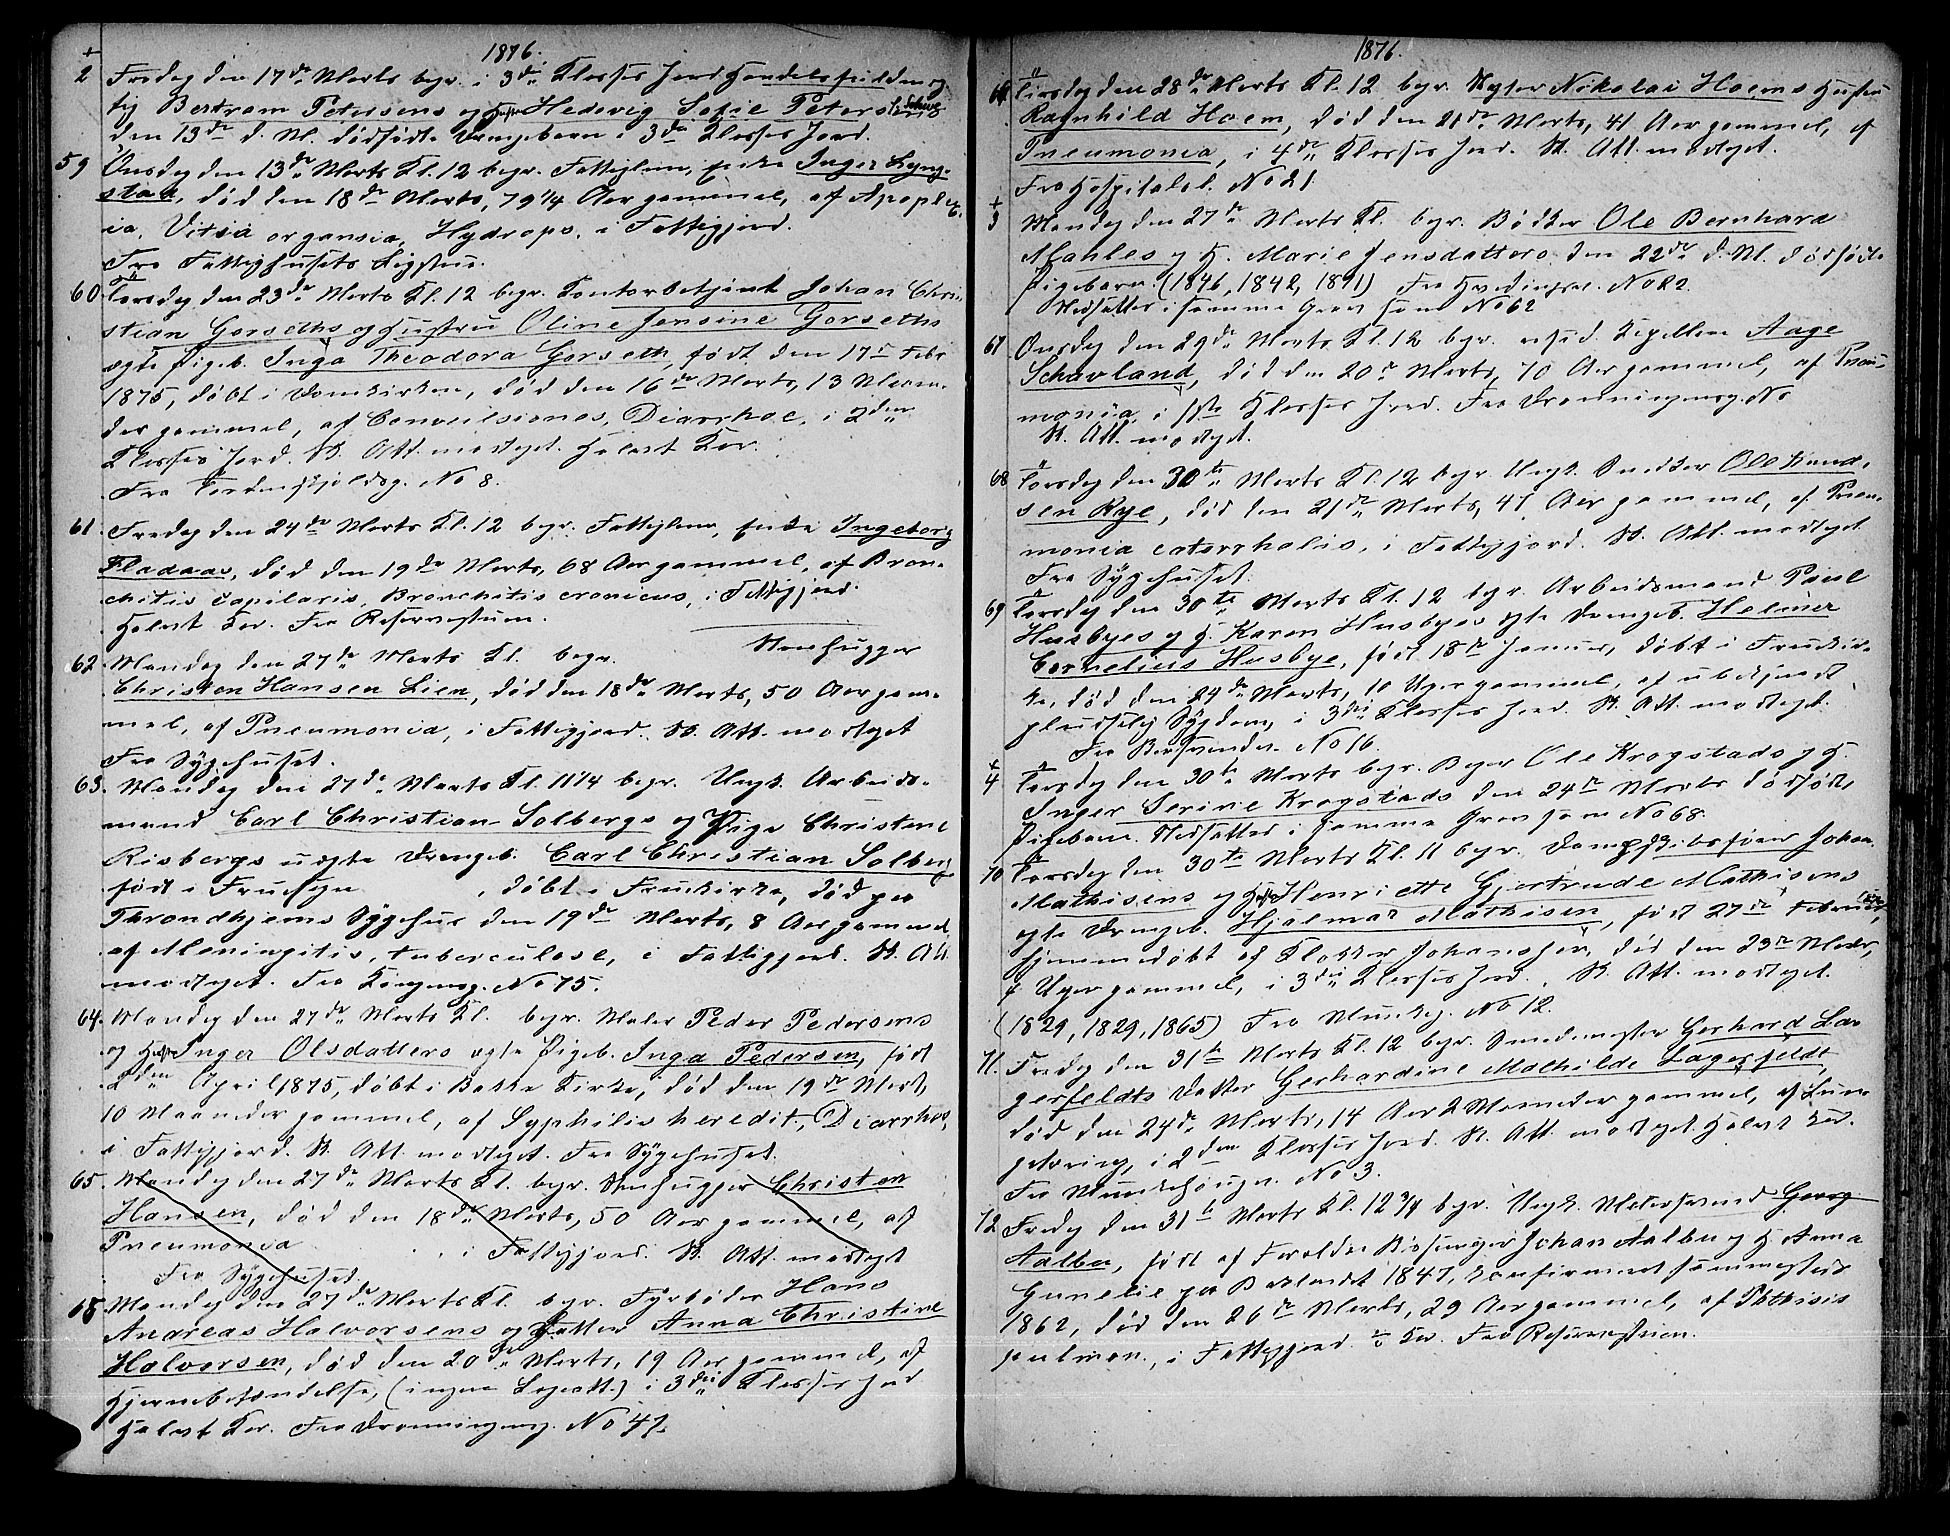 1876.
+
2 Fredag den 17de Marts begr. i 3die Klasses Jord Handelsfuldmæg
tig Bertram Petersens og Hustru Hedevig Sofie Petersens
den 13de d. M. dødfødte Drengebarn i 3die Klasses Jord.
59 Onsdag den 13de Marts Kl. 12 begr. Fattiglem, Enke Inger Lyng-
stad, død den 18de Marts, 79 1/4 Aar gammel, af Apoplex-
ia, Vitia organica, Hydrops, i Fattigjord.
Fra Fattighusets Ligstue.
60. Torsdag den 23de Marts Kl. 12 begr. Kontorbetjent Johan Chri-
stian Gorseths og Hustru Oline Jensine Gorseths
ægte Pigeb. Inga Theodora Gorseth, født den 17de Febr.
1875, døbt i Domkirken, død den 16de Marts, 13 Maane-
der gammel, af Convulsiones, Diarrhoe, i 2den
Klasses Jord. Sk. Att. modtaget. Halvt Kor.
Fra Tordenskjoldsg. No 8.
61. Fredag den 24de Marts Kl. 12 begr. Fattiglem, Enke Ingeborg
Fladaas, død den 19de Marts, 68 Aar gammel, af Bron-
chitis capilaris, Bronchitis cronicus, i Fattigjord.
Halvt Kor. Fra Reservestuen.
62. Mandag den 27de Marts Kl. begr. Stenhugger
Christen Hansen Lien, død den 18de Marts, 50 Aar gam-
mel, af Pneumonia, i Fattigjord. Sk. Att. modtaget
Fra Sygehuset.
63. Mandag den 27de Marts Kl. 11 1/4 begr. Ungk. Arbeids-
mand Carl Christian Solbergs og Pige Christene
Risbergs uægte Drengeb. Carl Christian Solberg
født i Frusogn , døbt i Fruekirke, død paa
Throndhjems Sygehus den 19de Marts, 8 Aar gammel,
af Meningitis, tuberculose, i Fattigjord. Sk. Att
modtaget. Fra Kongensg. No 75.
64. Mandag den 27de Marts Kl. begr. Maler Peder Pedersens
og Hustru Inger Olsdatters ægte Pigeb. Inga Pedersen, født
2den April 1875, døbt i Bakke Kirke, død den 19de Marts,
10 Maaneder gammel, af Syphilis heredit., Diarrhoe,
i Fattigjord. Sk. Att. modtaget. Fra Sygehuset.
65. Mandag den 27de Marts Kl. begr. Stenhugger Christen
Hansen, død den 18de Marts, 50 Aar gammel, af
Pneumonia i Fattigjord. Sk. Att. modtaget
Fra Sygehuset.
65. Mandag den 27de Marts Kl. begr. Fyrbøder Hans
Andreas Halvorsens og Datter Anna Christine
Halvorsen, død den 20de Marts, 19 Aar gammel, af
Hjernebetændelse, (ingen Lægeatt.) i 3die Klasses Jord
Halvt Kor. Fra Dronningensg. No 47.
1876.
Tirsdag den 28de Marts Kl. 12 begr. Nikolai Hoems Hustru
Ragnhild Hoem, død den 21de Marts, 41 Aar gammel, af
Pneumonia, i 4de Klasses Jord. Sk. Att. modtaget.
Fra Hospitalsl. No 21.
+
3 Mandag den 27de Marts Kl. begr. Bødker Ole Bernhard
Mahles og H. Marie Jensdatters den 22de d. M. dødfødte
Pigebarn. (1846, 1842, 1871) Fra No 22.
Nedsattes i samme Grav som No 62
67 Onsdag den 29de Marts Kl. 12 begr. resid. Kapellan Aage
Schavland, død den 20de Marts, 70 Aar gammel, af Pneu-
monia, i 1ste Klasses Jord. Fra Dronningensg. No
Sk. Att. modtaget.
68 Torsdag den 30te Marts Kl. 12 begr. Ungk. Snedker Ole Knud-
sen Rye, død den 21de Marts, 47 Aar gammel, af Pneu-
monia catarrhalis, i Fattigjord. Sk. Att. modtaget
Fra Sygehuset.
69 Torsdag den 30te Marts Kl. 12 begr. Arbeidsmand Paul
Husbyes og H. Karen Husbyes ægte Drengeb. Helmer
Cornelius Husbye, født 18de Januar, døbt i Fruekir-
ke, død den 24de Marts, 10 Uger gammel, af ubekjendt
pludselig Sygdom, i 3die Klasses Jord. Sk. Att. modtaget.
Fra No 16.
+
4 Torsdag den 30te Marts begr. Bager Ole Krogstads og H.
Inger Serine Krogstads den 24de Marts dødfødte
Pigebarn. Nedsattes i samme Grav som No 68.
70 Torsdag den 30te Marts Kl. 11 begr. Dampskibsfører Johan
Mathisens og Hustru Henriette Gjertrude Mathisens
ægte Drengeb. Hjalmar Mathisen, født 27de Februar,
hjemmedøbt af Klokker Johansen, død den 23de Marts,
4 Uger gammel, i 3die Klasses Jord. Sk. Att. modtaget.
(1829, 1829, 1865) Fra Munkeg. No 12.
71. Fredag den 31te Marts Kl. 12 begr. Smedemester Gerhard La-
gerfeldts Datter Gerhardine Mathilde Lagerfeldt,
død den 24de Marts, 14 Aar 2 Maaneder gammel, af Lun-
getæring, i 2den Klasses Jord. Sk. Att. modtaget. Halvt Kor.
Fra Munkhaugen. No 3.
72 Fredag den 31te Marts Kl. 12 3/4 begr. Ungk. Malersvend Georg
Aalbu, født af Forældre Johan Aalbu og H. Anna
Gunelie paa Baklandet 1847, konfirmeret sammesteds
1862, død den 26de Marts, 29 Aar gammel, af Phthisis
pulmon., i Fattigjord. 1/2 Kor. Fra Reservestuen.